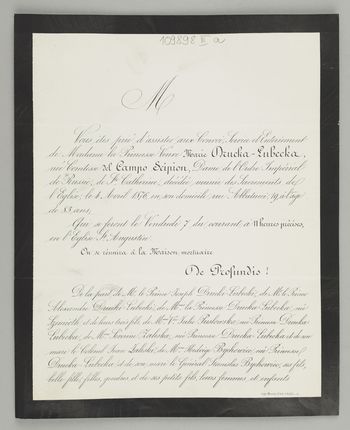 109898 II a
M
Vous êtes prié d'assister aux Convoi, Service et Enterrement
de Madame la Princesse Veuve Marie Drucka-Lubecka,
née Comtesse del Campo Scipion, Dame de l'Ordre Impérial
de Russie, de Ste Catherine, décédée, munie des Sacrements de
l'Eglise, le 4 Avril 1876, en son domicile, rue 19, à l'âge
de 83 ans,
Qui se feront le Vendredi 7 du courant à 11 heures précises,
en l'Eglise St Augustin.
On se réunira à la Maison mortuaire
De Profundis !
De la part de M. le Prince Joseph Drucki-Lubecki, de M. le Prince
Alexandre Drucki-Lubecki, de Mme la Princesse Drucka-Lubecka, née
et de leurs trois fils, de Mme Vve Julie née Princesse Drucka-
Lubecka, de Mme née Princesse Drucka-Lubecka et de son
mari le Colonel Jean de Mme Hedwige Byhowiec, née Princesse
Drucka-Lubecka et de son mari le Général Stanislas Byhowiec, ses fils,
belle-fille, filles, gendres, et de ses petits fils, leurs femmes, et enfants.